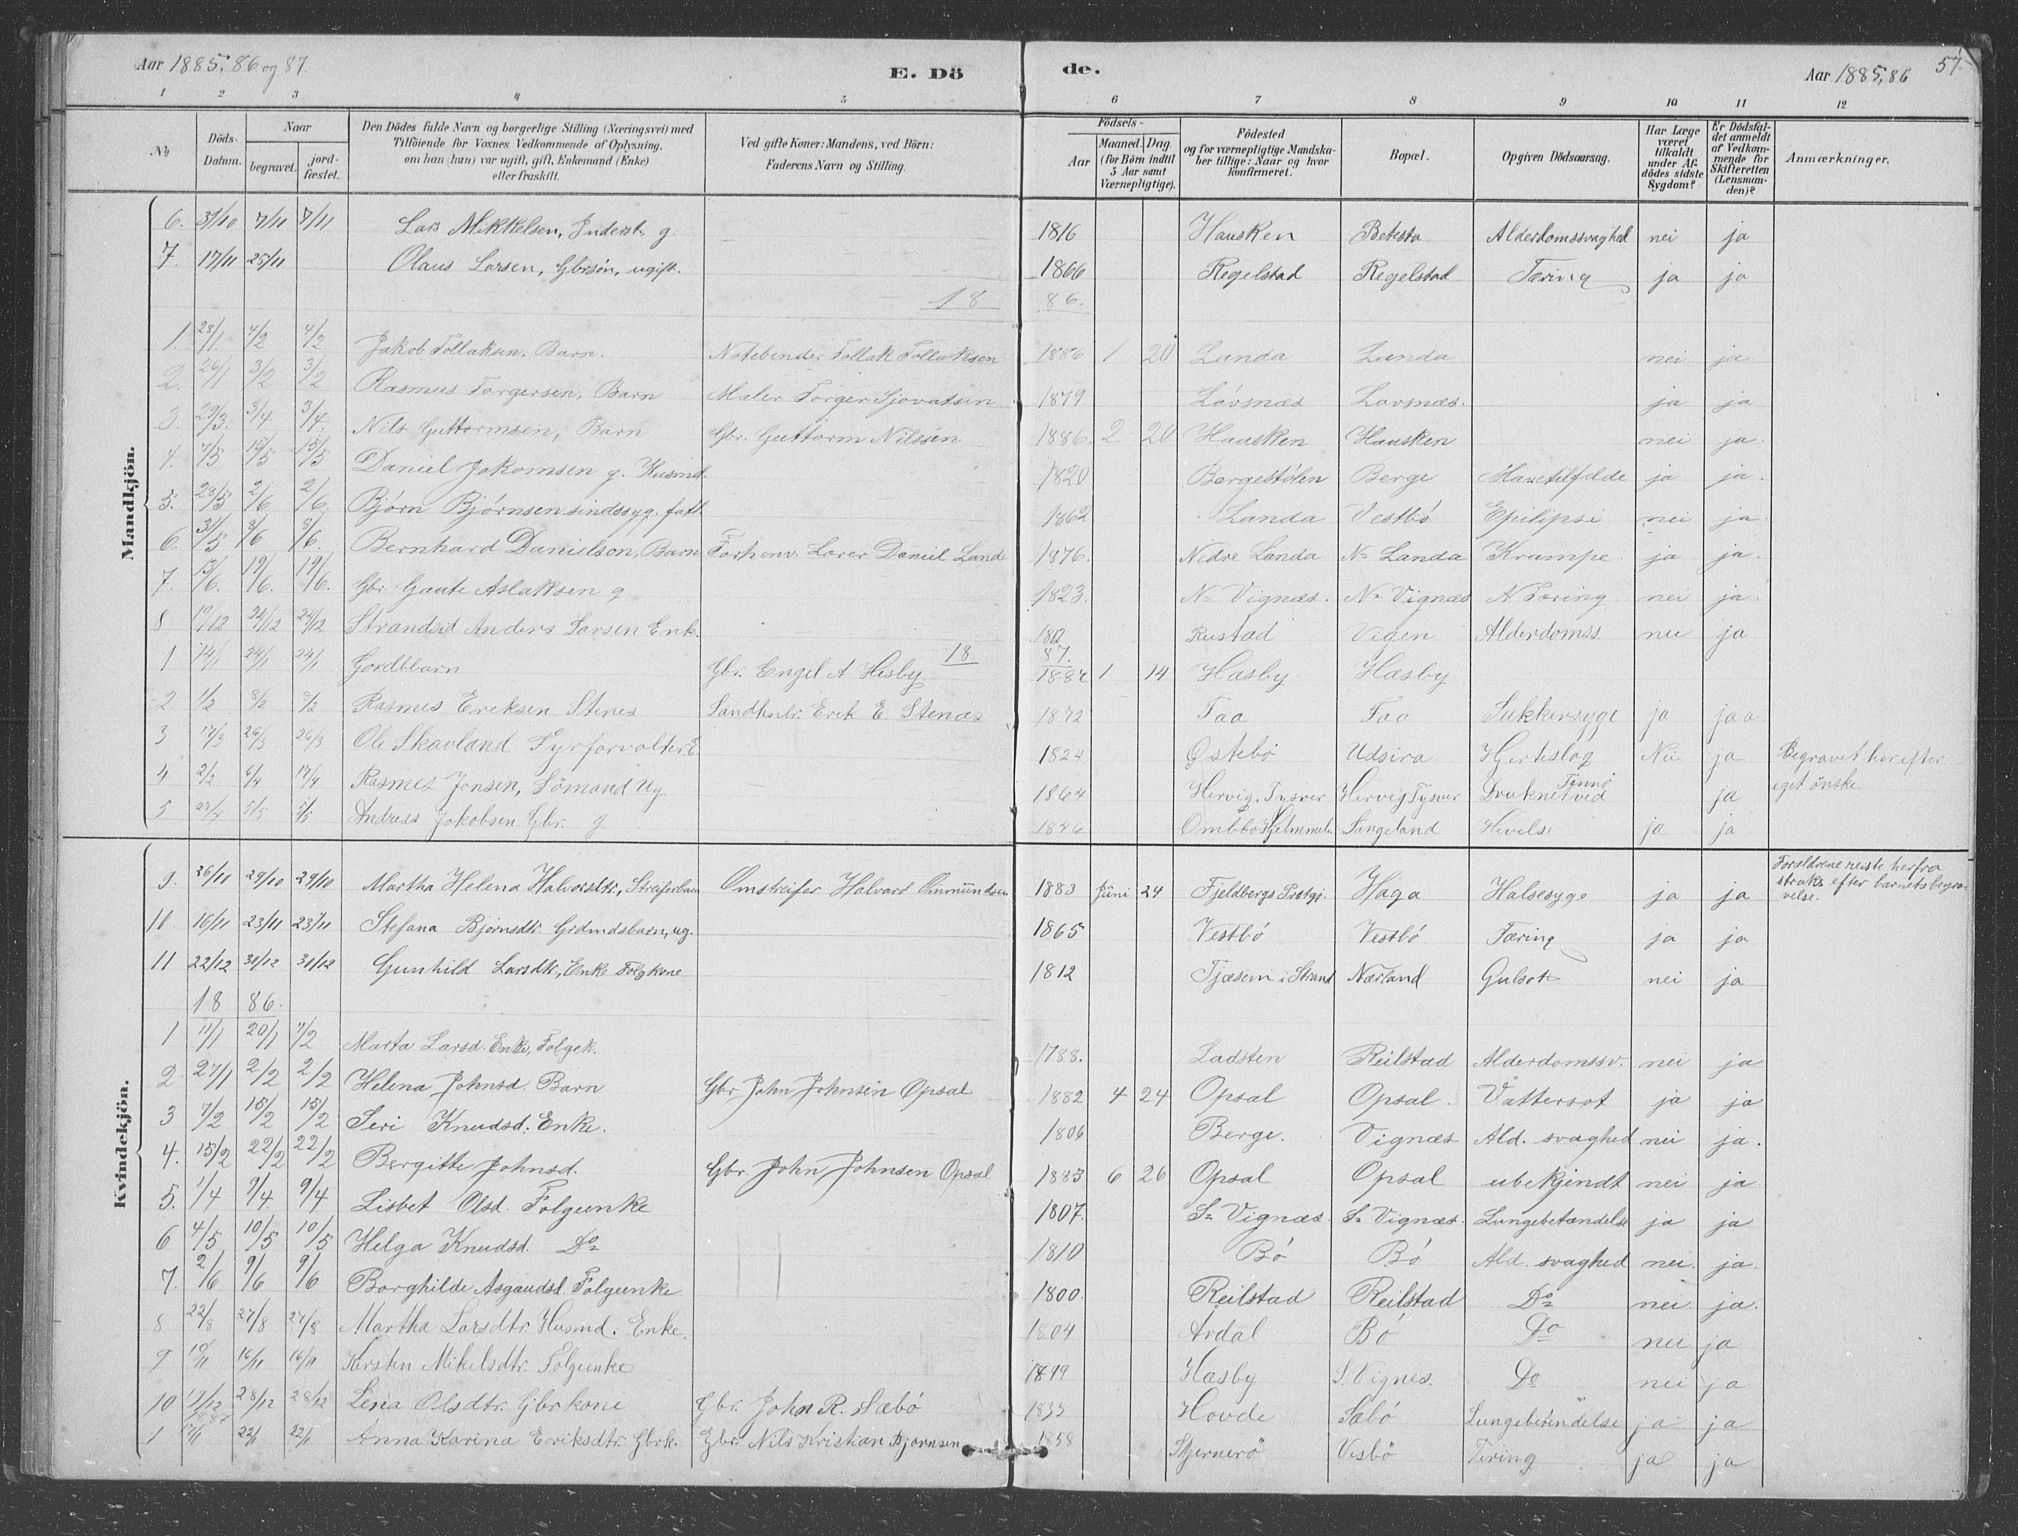 Aar 1885, 86 og 87.
E. Dö
de.
Aar 1885, 86
57.
1 2 3 4 5 6 7 8 9 10 11 12
No
Döds-Datum.
Naar
begravet.
jord-fæstet.
Den Dödes fulde Navn og borgerlige Stilling (Næringsvei) med
Tilföiende for Voxnes Vedkommende af Oplysning,
om han (hun) var ugift, gift, Enkemand (Enke)
eller fraskilt.
Ved gifte Koner: Mandens, ved Börn:
Faderens Navn og Stilling.
Födsels-
Aar
Maaned. Dag.
(for Börn indtil
5 Aar samt
Værnepligtige).
Födested
og for værnepligtige Mandska-
ber tillige: Naar og hvor
konfirmeret.
Bopæl.
Opgiven Dödsaarsag.
Har Læge
været
tilkaldt
under Af-
dödes sidste
Sygdom?
Er Dödsfal-
det anmeldt
af Vedkom-
mende for
Skifteretten
(Lensman-
den)?
Anmærkninger.
Mandkjön.
6. 31/10 7/11 7/11 Lars Mikkelsen, Inderst. g. 1816 Hausken Betesta Alderdomssvaghed nei ja
7. 17/11 25/11 Olaus Larsen, Gbrsøn, ugift. 1866 Regelstad Regelstad Tæring ja ja
18 86.
1 28/1 4/2 4/2 Jakob Tollaksen, Barn. Notebinder Tollak Tollaksen 1886 1 20 Landa Landa nei ja
2. 26/1 3/2 3/2 Rasmus Torgersen, Barn Maler Torger Sjovatsen 1879 Løvsnæs Lovsnæs. ja ja
3. 29/3. 3/4 3/4. Nils Guttormsen, Barn Gbr. Guttorm Nilssen 1886. 2 20 Hausken Hausken nei ja.
4. 7/5 15/5 15/5 Daniel Jokomsen g. Husmd. 1820 Bergestølen Berge Mavetilfælde ja ja.
5. 23/5 2/6 2/6. Bjørn Bjørnsen sindssyg. fatt. 1862 Landa Vestbø Epilipsi nei ja.
6. 31/5 8/6 8/6. Bernhard Danielson, Barn Forhenv. Lærer Daniel Land 1876. Nedre Landa N= Landa Krampe. ja ja.
7. 13/6. 19/6. 19/6. Gbr. Gaute Aslaksen g 1823. N= Vignæs. N= Vignæs N Tæring nei ja.
8 17/12 24/12 24/12 Strandsid Anders Larsen Enk. 1812 Rustad Vigen Alderdomss. nei ja
18 87.
1 14/1 24/1 24/1 Gbr. Engel A Hesby 1887 1 14 Hæsby Hæsby
2 1/2 8/2 8/2 Rasmus Eriksen Stenes Erik E. Stenæs 1872 Faa Faa Sukkersyge ja jaa
3 17/3 26/3 26/3 Ole Skavland Fyrforvalter E 1824 Østebø Udsira Hjerteslag Nei ja Begravet her efter
eget ønske.
4 2/2 6/4 17/4 Rasmus Jonsen, Sömand Ug 1864 Hervig, Tysver Hervig Tysver Druknet ved ja
5 27/4 5/5 5/5 Andreas Jakobsen Gbr. g 1846 Ombbo Hjelmmel. Sangeland Hevelse ja ja
Kvindekjön.
9. 26/11 29/10 29/10 Martha Helena Halvorsdtr, Streiferbarn Omstreifer Halvard Ommundsen 1883 Juni 24 Fjeldbergs Prstgj. Haga Halsesyge ja ja Forældrene reiste herfra
straks efter barnets begra-
velse.
10. 16/11 23/11 23/11 Stefana Bjørnsdtr. Grdmdsbarn, ug. 1865 Vestbø Vestbø Tæring ja ja
11 22/12 31/12 31/12 Gunhild Larsdtr, Enke Folgkone 1812 Tjæsem i Strand Nærland Gulsot nei ja
18 86.
1 11/1 20/1 7/2 Marta Larsd. Enke, Folgek. 1788. Ladsten Reilstad Alderdomssv. nei ja
2 27/1 2/2 2/2 Helena Johnsd. Barn Gbr John Johnsen Opsal 1882 4 24 Opsal Opsal. Vattersot ja ja
3 7/2 15/2 15/2 Seri Knudsd. Enke. 1806 Berge. Vignæs Ald. svaghed nei ja.
4. 15/2 22/2 22/2 Bergitte Johnsd. Gbr John Johnsen Opsal 1883 6 26 Opsal Opsal ubekjendt nei ja
5. 1/4 9/4. 9/4 Lisbet Olsd. Folgeenke 1807. S= Vignæs S= Vignæs. Lungebetændelse ja ja
6 4/5 10/5 10/5 Helga Knudsd. Do= 1810 Bø Bø Ald. svaghed nei. ja.
7. 2/6 9/6 9/6 Borghilde Asgautsd. Folgeenke 1800. Reilstad Reilstad Do= nei ja.
8 22/8 27/8 27/8 Martha Larsdtr. Husmd. Enke. 1804 Ardal Bø Do nei ja
9 10/11 16/11 16/11 Kirsten Mikelsdtr. Folgeenke 1799 Hæsby S. Vignes. Do nei ja
10 17/12 28/12 28/12 Lena Olsdtr. Gbrkone Gbr. John R. Sæbø 1833 Hovde Sæbö Lungebetændelse ja ja
1887
1 17/1 22/1 22/1 Anna Karina Eriksdtr. Gbrk. Gbr. Nils Kristian Bjornsen 1858 Stjernerö Vesbö Tæring ja ja